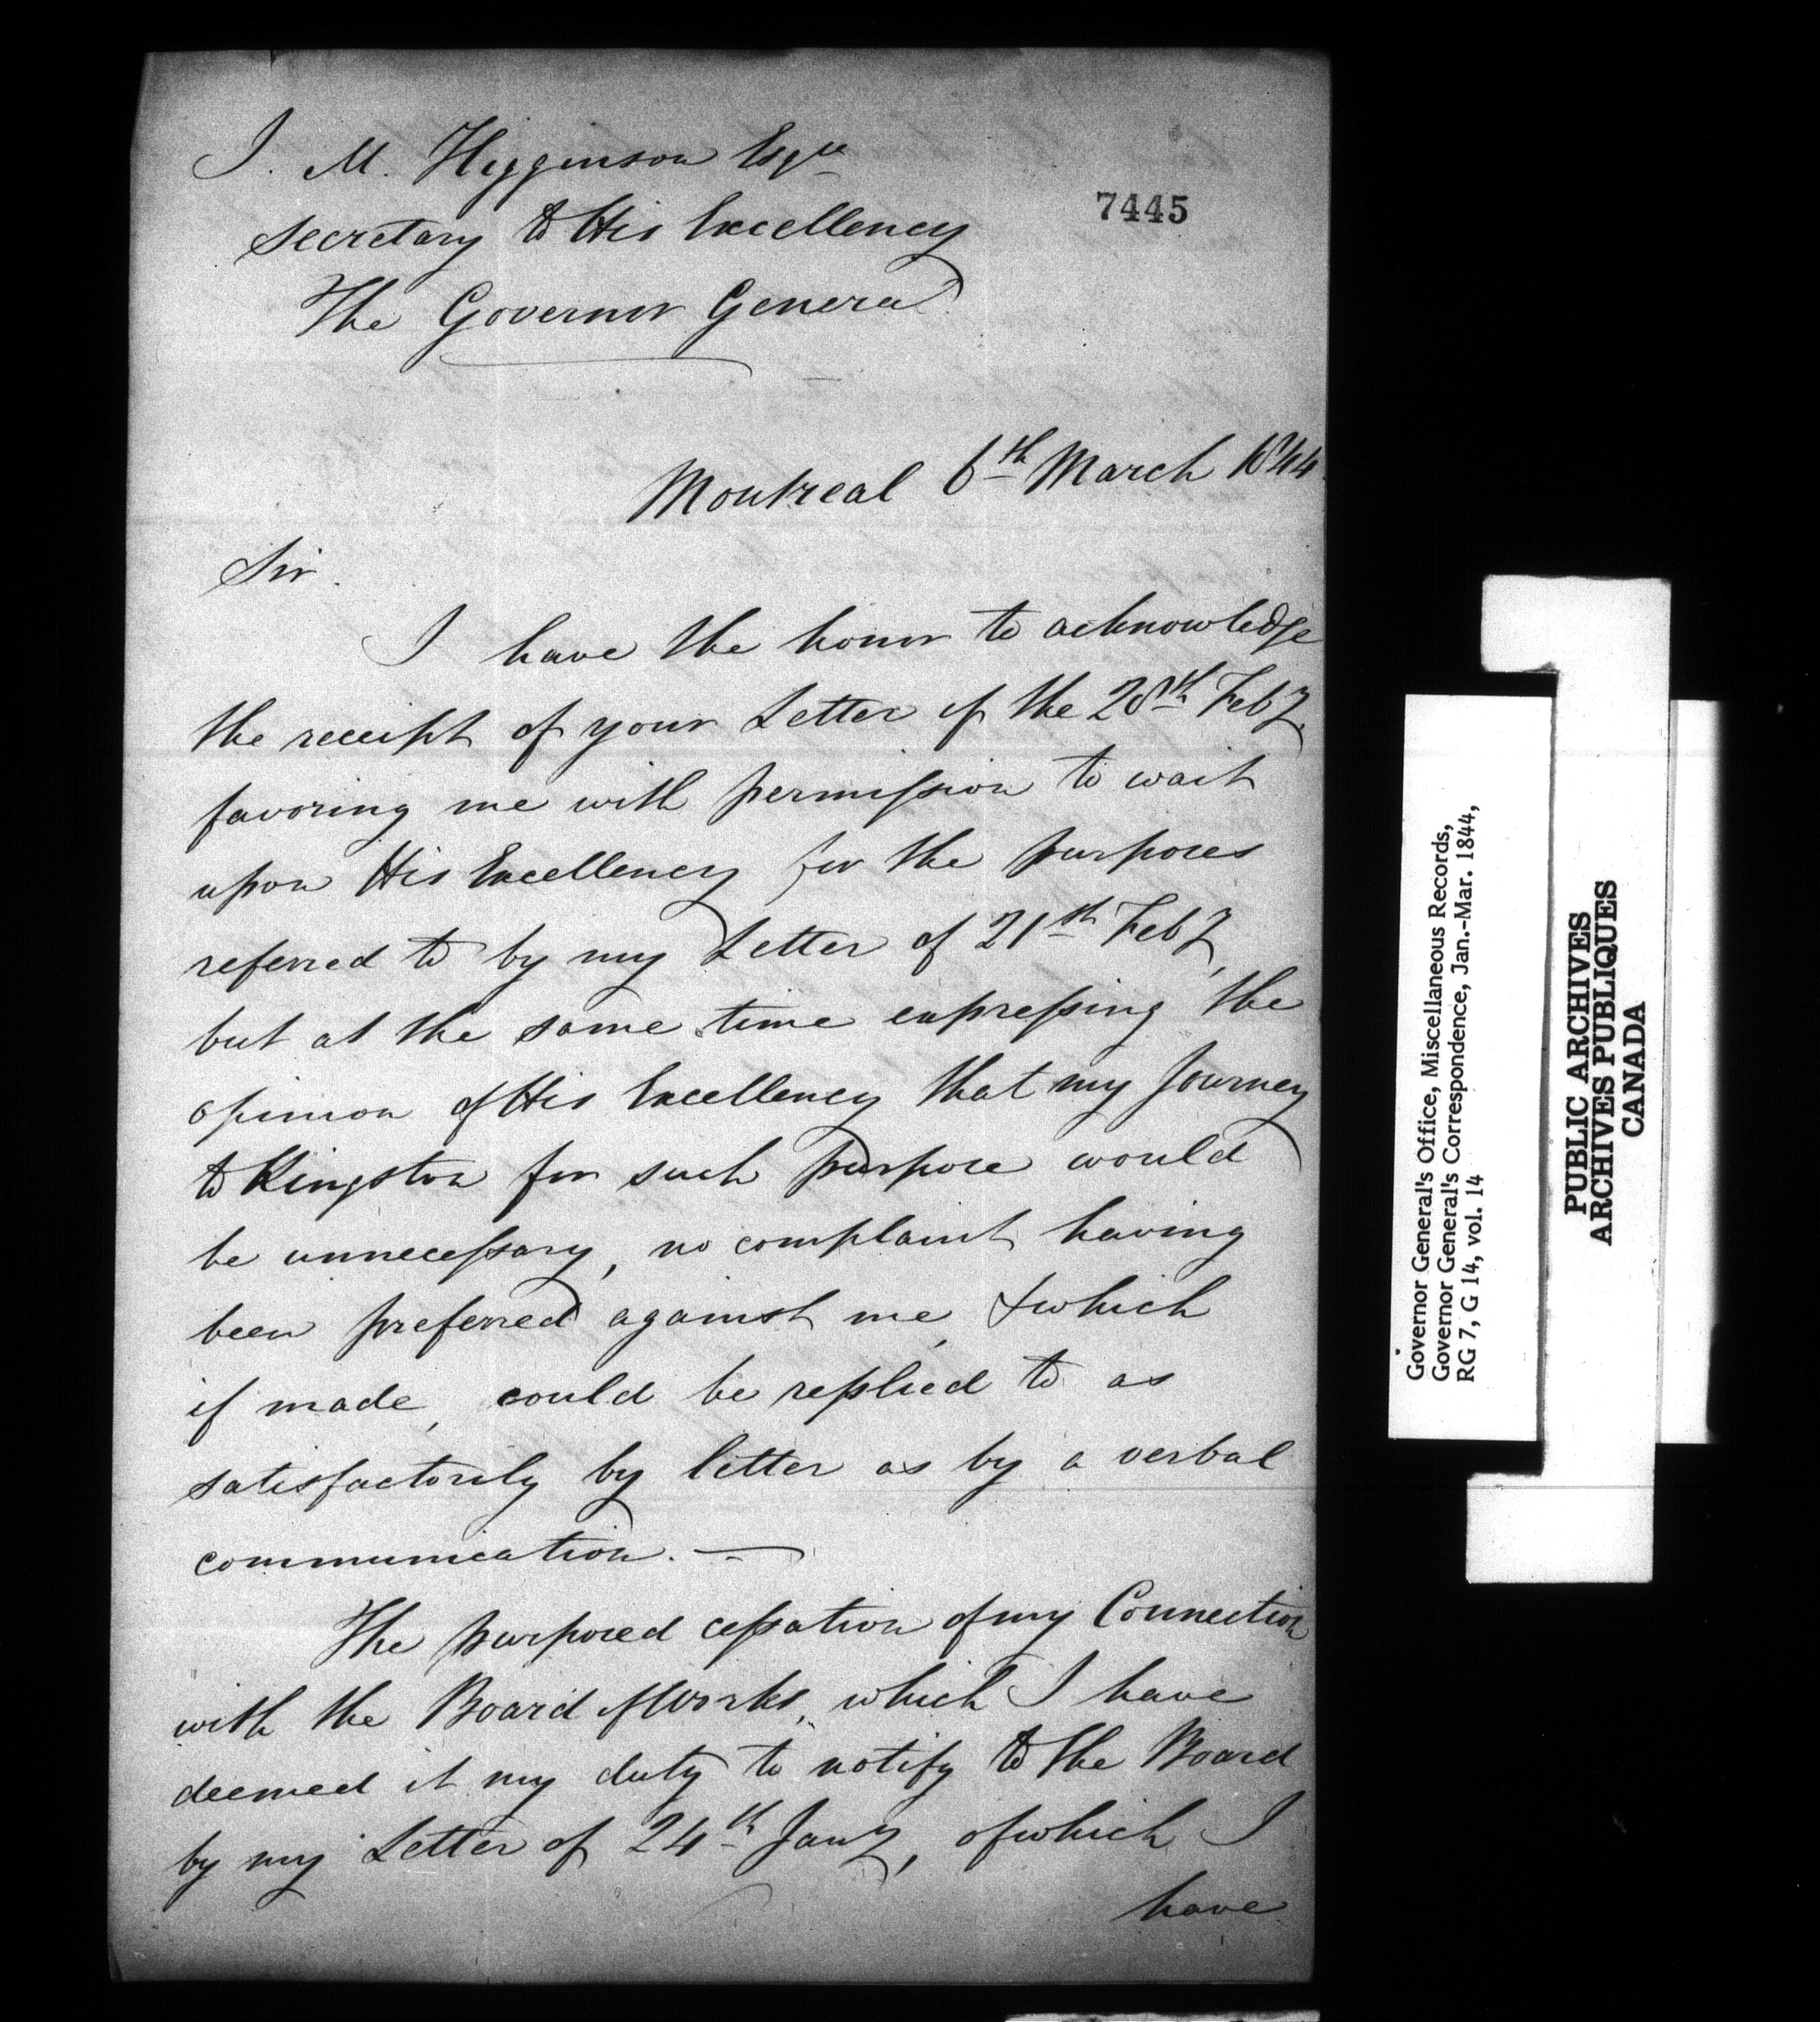 J. M. Higginson Esqre
7445
Secretary to His Excellency
The Governor General
Montreal 6th March 1844
Sir.
I have the honor to acknowledge
the receipt of your Letter of the 28th Feby,
favoring me with permission to wait
upon His Excellency for the purposes
referred to by my Letter of 21st Feby,
but at the same time expressing the
opinion of His Excellency that my Journey
to Kingston for such purpose would
be unnecessary, no complaint having
been preferred against me, & which
if made, could be replied to as
satisfactorily by letter as by a verbal
communication. —
The purposed cessation of my Connection
with the Board of Works, which I have
deemed it my duty to notify to the Board
by my Letter of 24th Jany, of which I
have
Governor General's Office, Miscellaneous Records,
Governor General's Correspondence, Jan.-Mar. 1844,
RG 7, G 14, vol. 14
PUBLIC ARCHIVES
ARCHIVES PUBLIQUES
CANADA